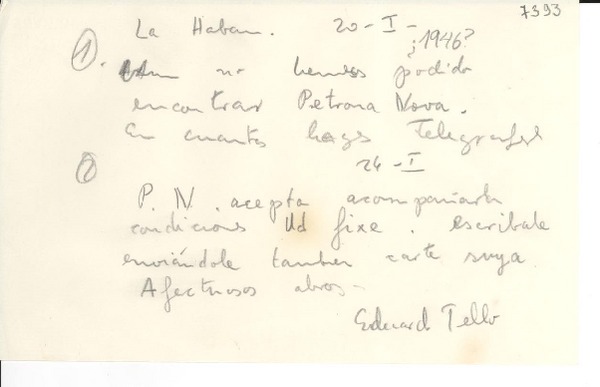 7393
La Haban. 20-I-
¿1946?
1. Aun no hemos podido
encontrar Petrona Nova.
En cuanto hages Telegrafié
2 24-I
P. N. acepta acompañarla
condicions Ud fixe. escribale
enviándole tambien carte suya.
Afectuosos abros-
Eduard Tello